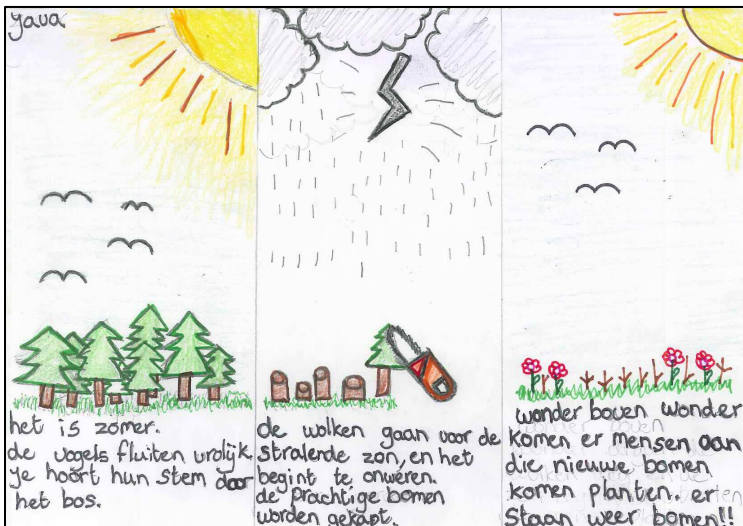 Yava
het is zomer.
de vogels fluiten vrolijk.
je hoort hun stem door
het bos.
de wolken gaan voor de
stralende zon, en het
begint te onweren.
de prachtige bomen
worden gekapt.
wonder boven wonder
komen er mensen aan
die nieuwe bomen
komen planten. er
staan weer bomen!!